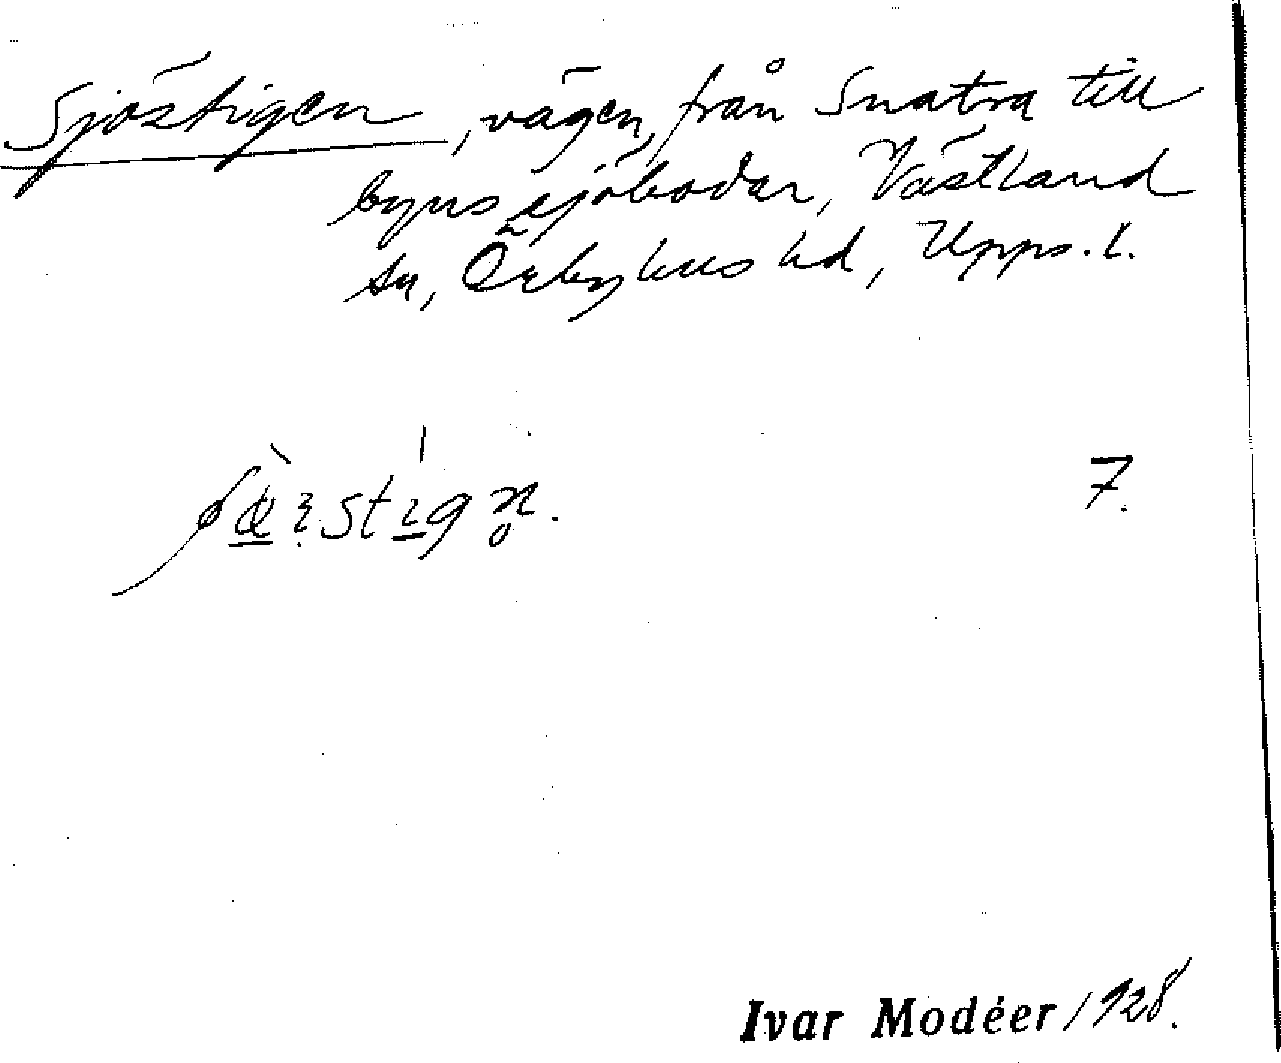 Sjöstigen, vägen från Snatra till
byns sjöbodar, Västland
sn, Örbyhus hd, Upps. l.
7.
Ivar Modéer 1928.